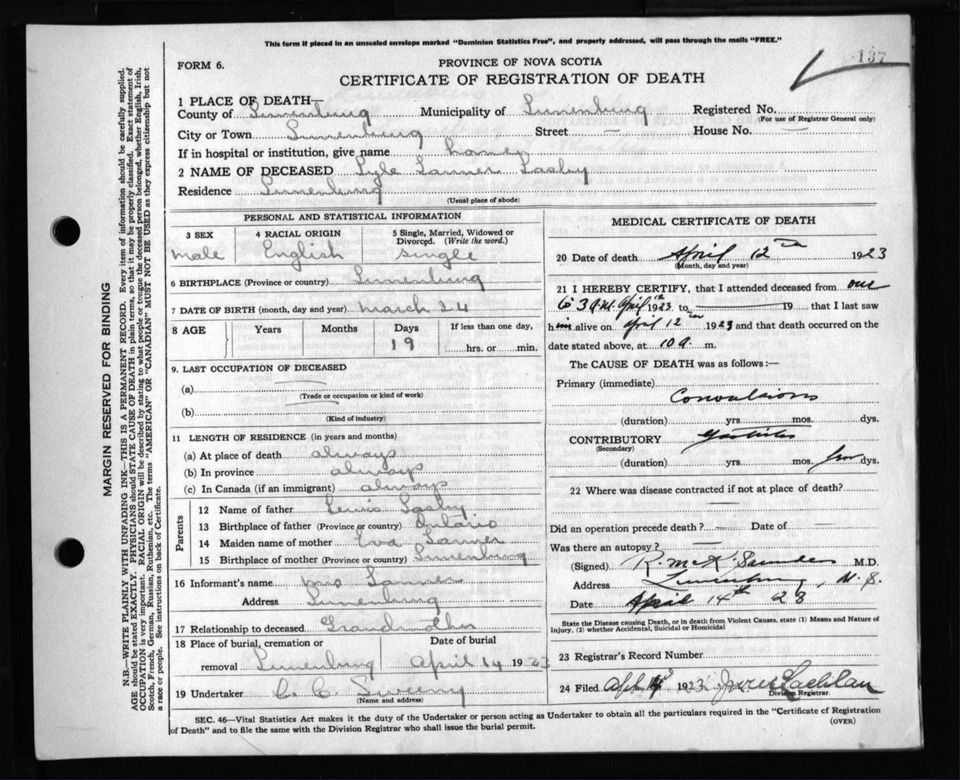 This form if placed in an unsealed envelope marked "Dominion Statistics Free", and properly addressed, will pass through the mails "FREE."
137
FORM 6.
PROVINCE OF NOVA SCOTIA
CERTIFICATE OF REGISTRATION OF DEATH
1 PLACE OF DEATH—
County of Lunenburg Municipality of Lunenburg Registered No.
(For use of Registrar General only)
City or Town Lunenburg Street — House No. —
If in hospital or institution, give name home
2 NAME OF DECEASED Lyle Lasby
Residence Lunenburg
(Usual place of abode)
PERSONAL AND STATISTICAL INFORMATION
3 SEX 4 RACIAL ORIGIN 5 Single, Married, Widowed or Divorced. (Write the word.)
male English single
6 BIRTHPLACE (Province or country) Lunenburg
7 DATE OF BIRTH (month, day and year) March 24
8 AGE Years Months Days If less than one day,
19 hrs. or min.
9. LAST OCCUPATION OF DECEASED
(a) —
(Trade or occupation or kind of work)
(b) —
(Kind of industry)
11 LENGTH OF RESIDENCE (in years and months)
(a) At place of death always
(b) In province always
(c) In Canada (if an immigrant) always
Parents
12 Name of father Lewis Lasby
13 Birthplace of father (Province or country) Ontario
14 Maiden name of mother Eva
15 Birthplace of mother (Province or country) Lunenburg
16 Informant's name Mrs
Address Lunenburg
17 Relationship to deceased Grandmother
18 Place of burial, cremation or removal Lunenburg Date of burial April 14 1923
19 Undertaker C. C.
(Name and address)
MEDICAL CERTIFICATE OF DEATH
20 Date of death April 12th 1923
(Month, day and year)
21 I HEREBY CERTIFY, that I attended deceased from
1923 to 19 that I last saw
h alive on April 12th 1923 and that death occurred on the
date stated above, at 10 a. m.
The CAUSE OF DEATH was as follows:—
Primary (immediate) Convulsions
(duration) yrs. mos. dys.
CONTRIBUTORY Gastritis
(Secondary)
(duration) yrs. mos. dys.
22 Where was disease contracted if not at place of death?
Did an operation precede death? — Date of —
Was there an autopsy? —
(Signed) R. McK Saunders M.D.
Address Lunenburg, N.S.
Date April 14th 23
State the Disease causing Death, or in death from Violent Causes, state (1) Means and Nature of Injury, (2) whether Accidental, Suicidal or Homicidal
23 Registrar's Record Number
24 Filed 1923
Division Registrar.
SEC. 46—Vital Statistics Act makes it the duty of the Undertaker or person acting as Undertaker to obtain all the particulars required in the "Certificate of Registration
of Death" and to file the same with the Division Registrar who shall issue the burial permit.
(OVER)
MARGIN RESERVED FOR BINDING
N.B.—WRITE PLAINLY WITH UNFADING INK—THIS IS A PERMANENT RECORD. Every item of information should be carefully supplied.
AGE should be stated EXACTLY. PHYSICIANS should STATE CAUSE OF DEATH in plain terms, so that it may be properly classified. Exact statement of
OCCUPATION is very important. RACIAL ORIGIN will be described by stating to what people or tongue the deceased person belonged, whether English, Irish,
Scotch, French, German, Russian, Ruthenian, etc. The terms "AMERICAN" or "CANADIAN" MUST NOT BE USED as they express citizenship but not
a race or people. See instructions on back of Certificate.